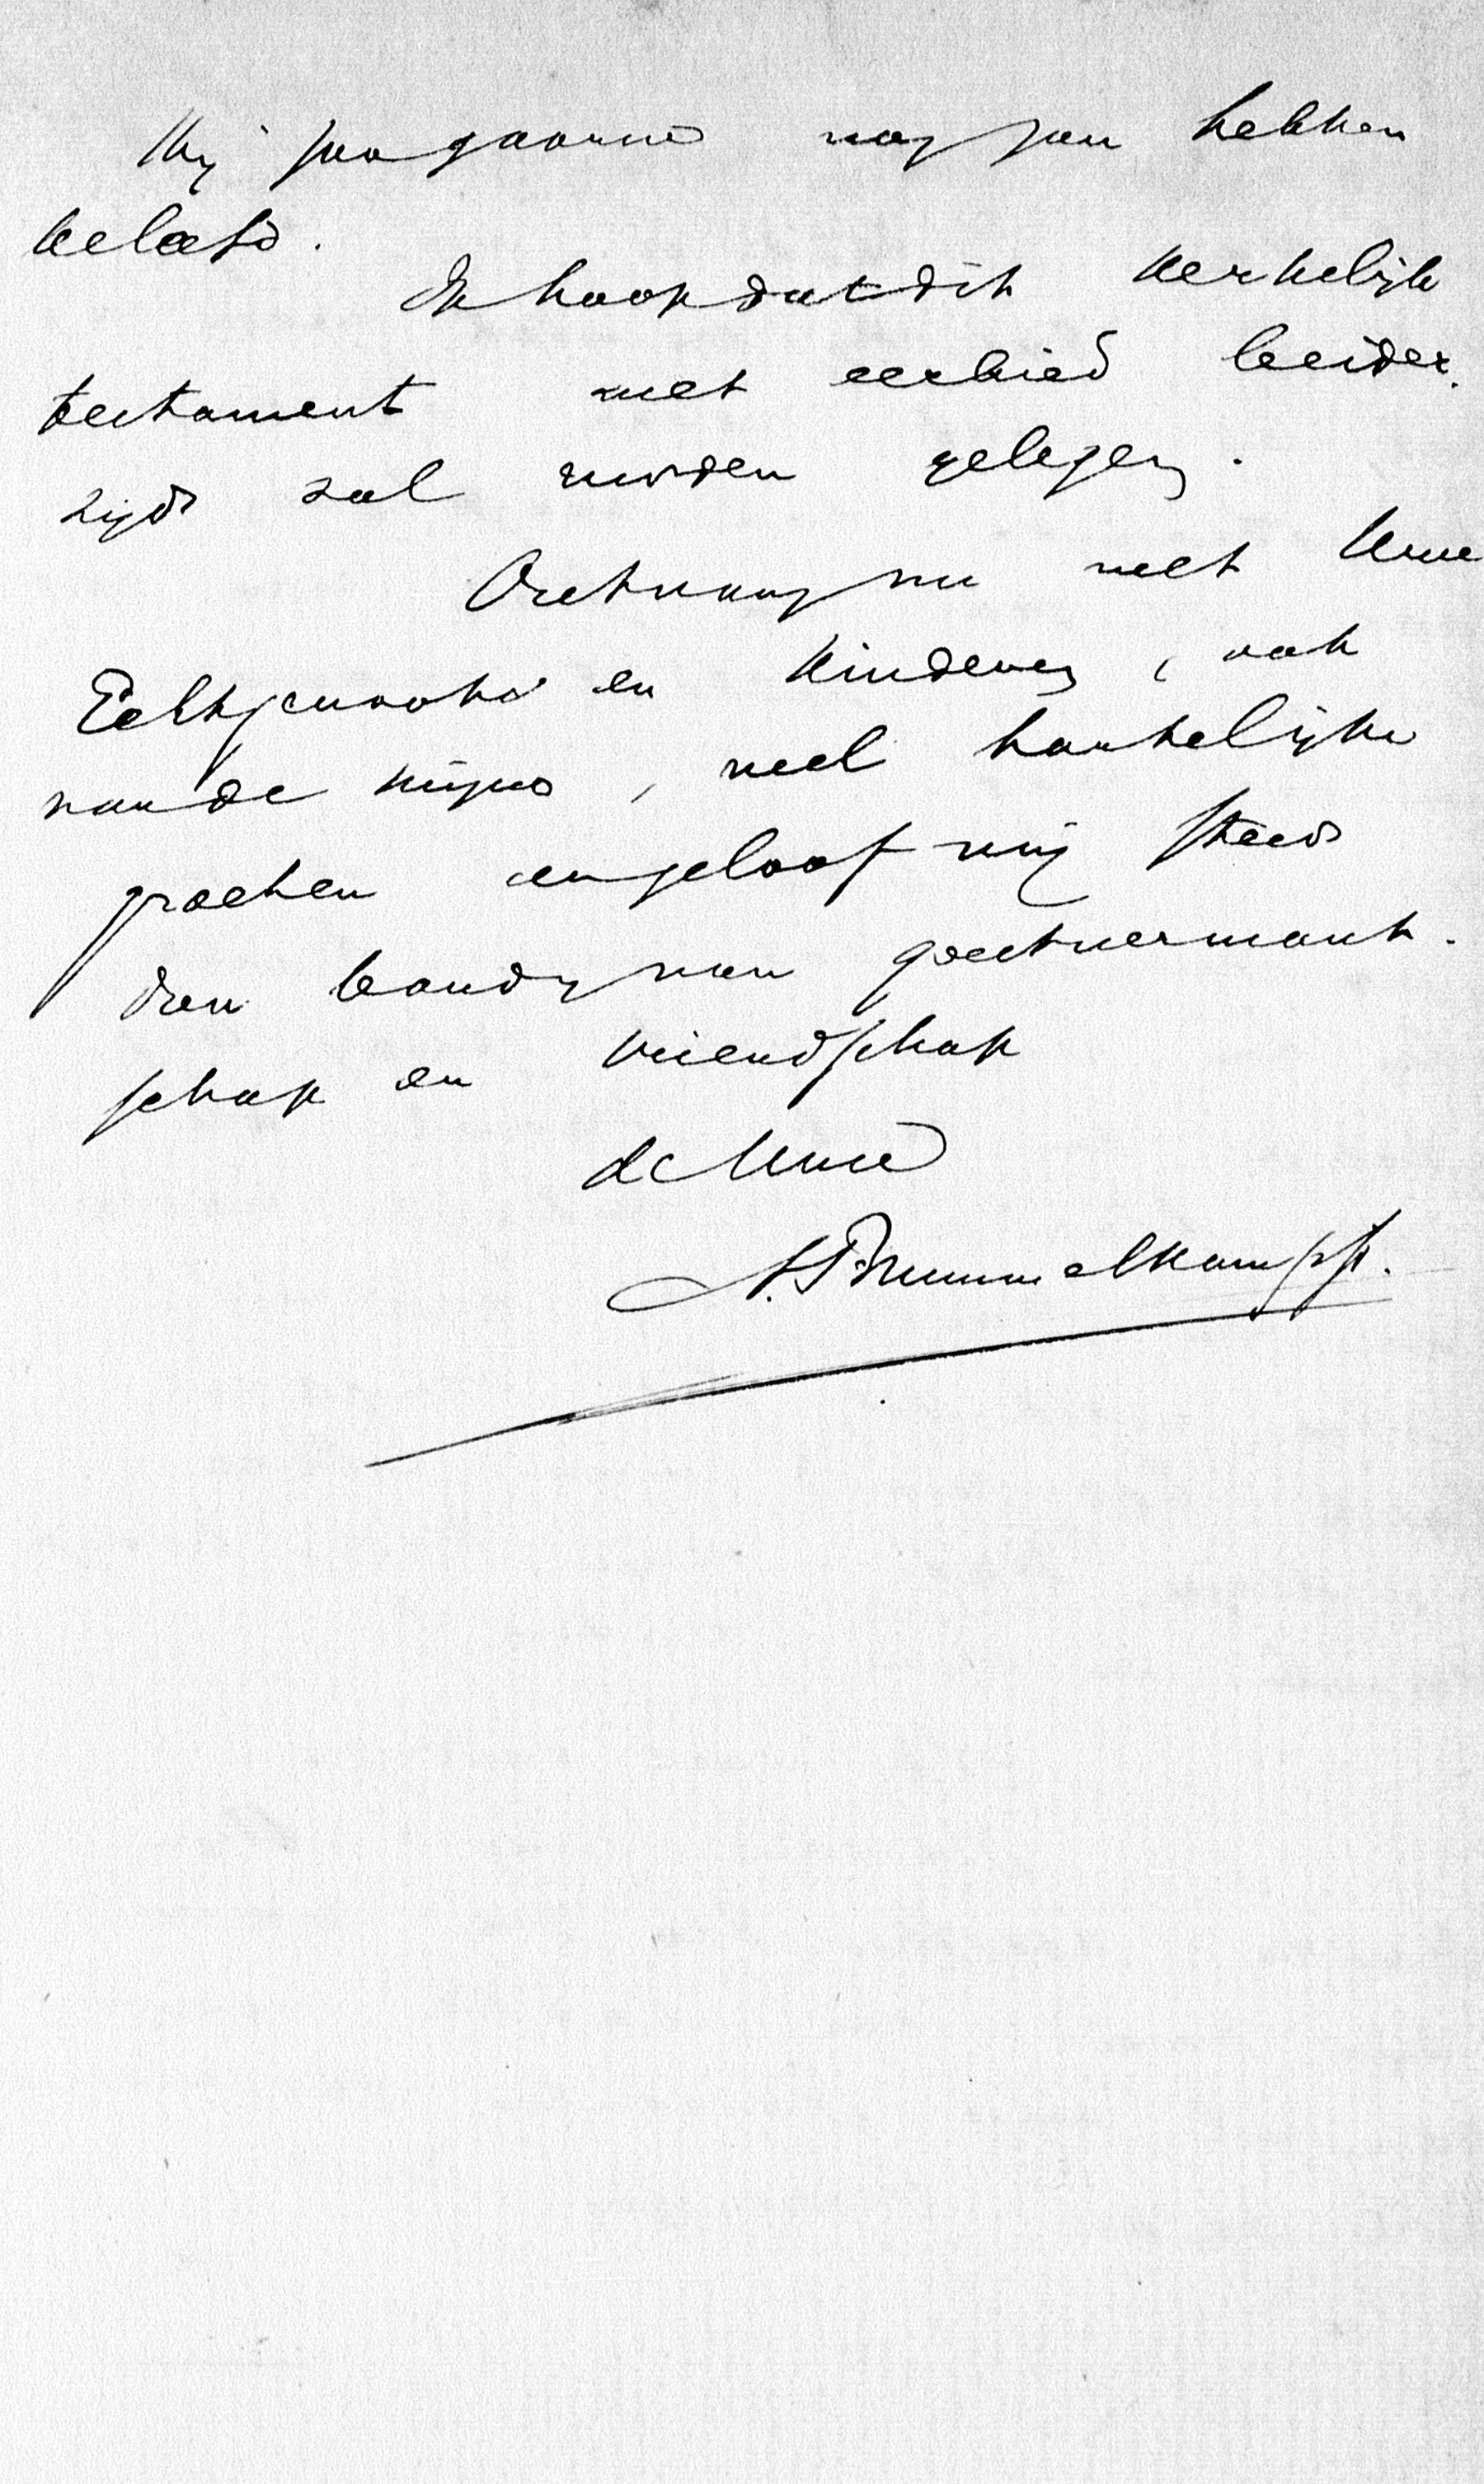 hij zoo gaarne nog zou hebben
beleefd.
Ik hoop dat dit kerkelijk
testament met eerbied beider-
zijds zal worden gelezen.
Ontvang nu met Uwe
Echtgenoote en kinderen, ook
van de mijne, veel hartelijke
groeten en geloof mij steeds
den band van geestverwant-
schap en vriendschap
de Uwe
A. Brummelkamp Jr.